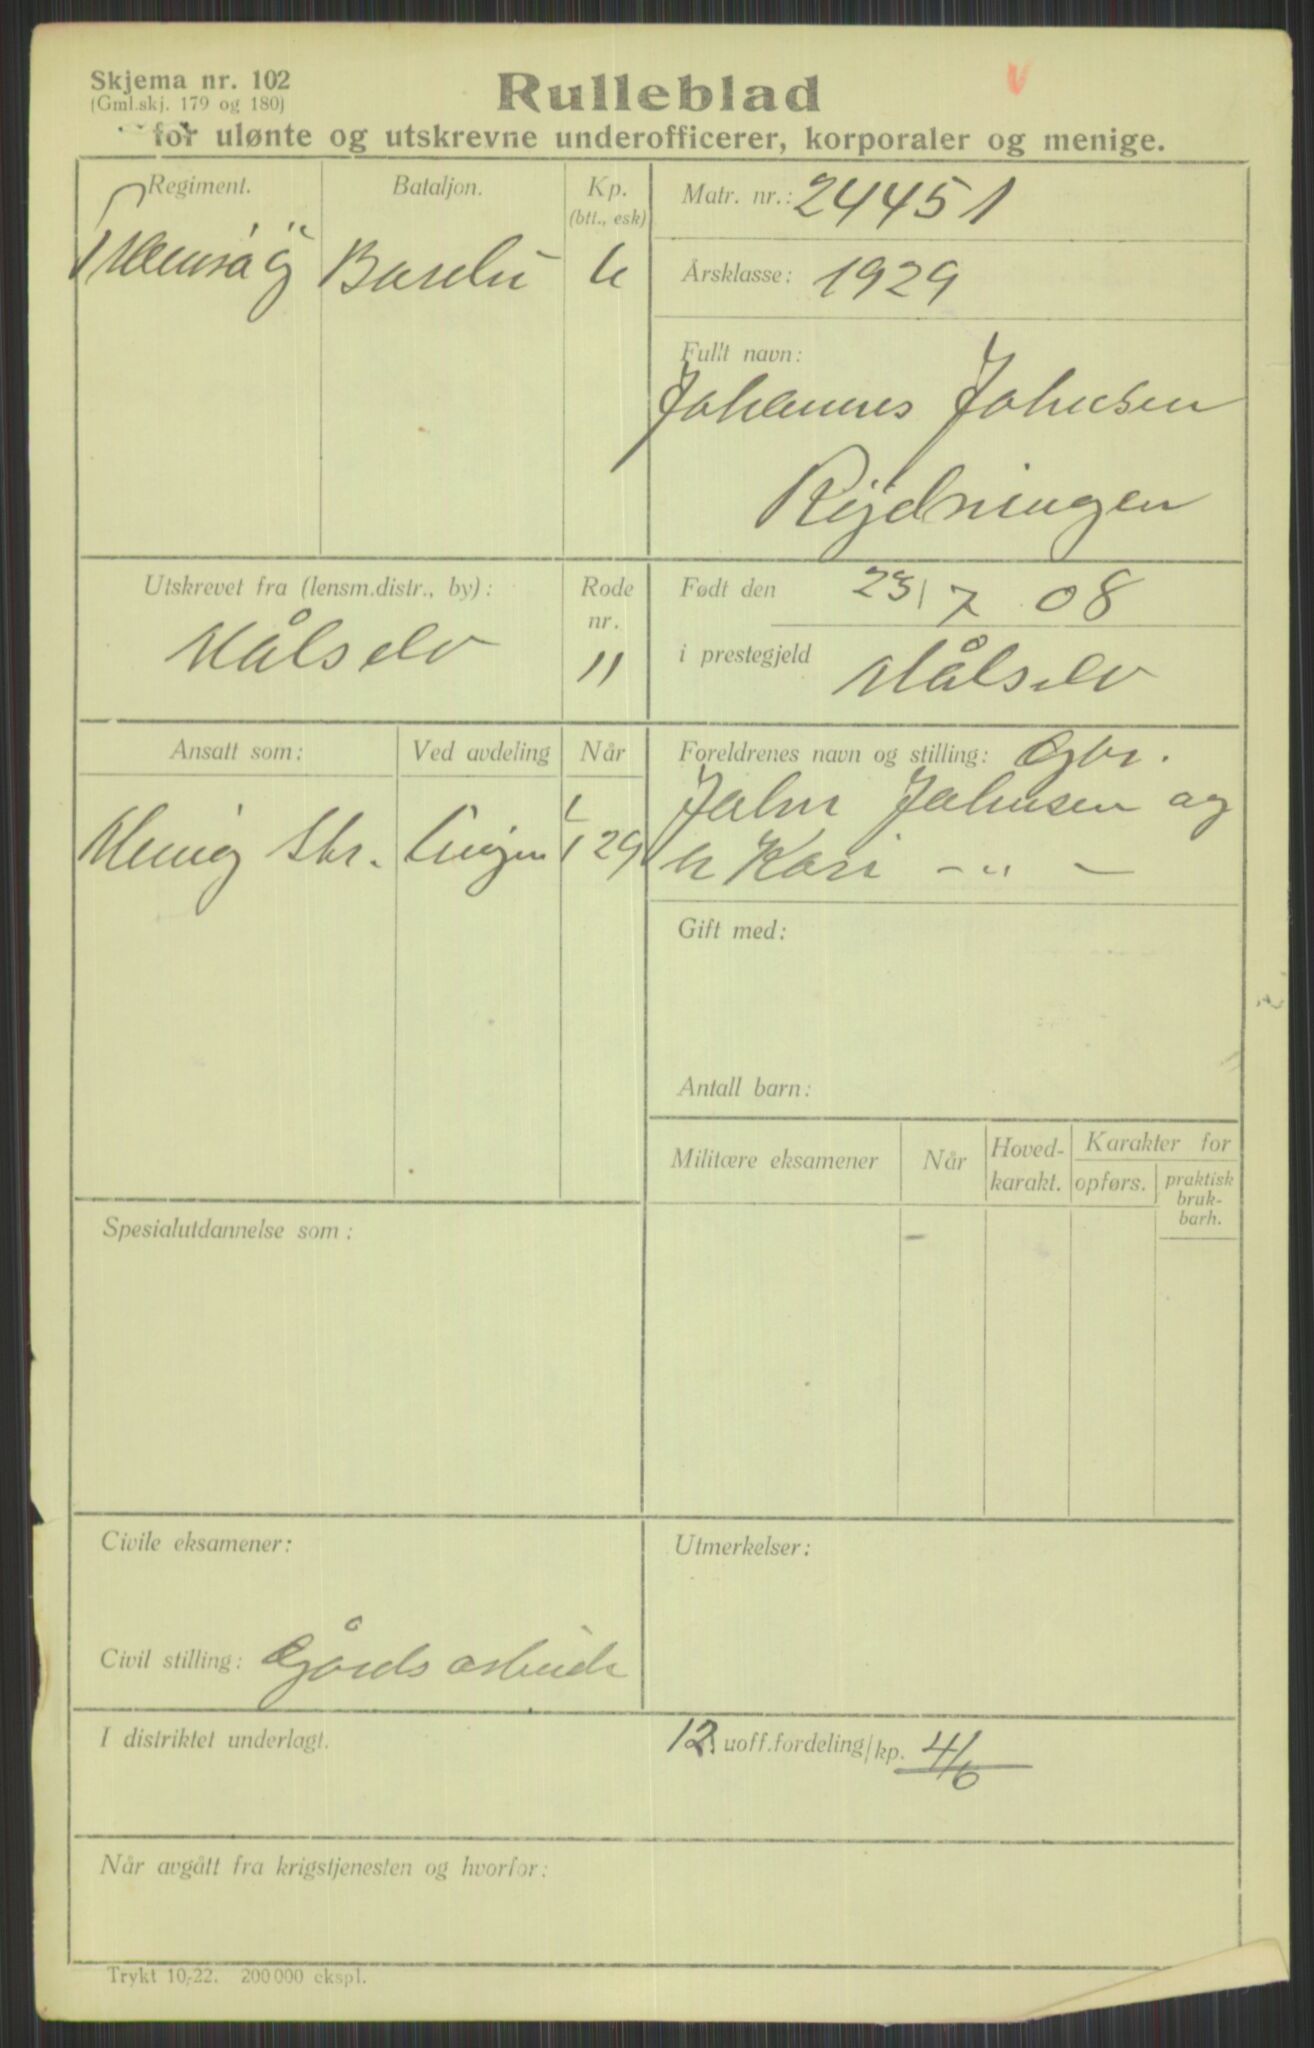 Skjema nr. 102
(Gml.skj. 179 og 180)
Rulleblad
for ulønte og utskrevne underofficerer, korporaler og menige.
Regiment. Bataljon. Kp. (btt., esk)
Matr. nr.: 24451
Årsklasse: 1929
Fullt navn:
Johannes Johnsen
Rydningen
Utskrevet fra (lensm.distr., by):
Målselv
Rode nr.
11
Født den 23/7 08
i prestegjeld Målselv
Ansatt som: Ved avdeling Når
Menig Str. 29
Foreldrenes navn og stilling: Gbr.
John Johnsen og
h Kari - " -
Gift med:
Antall barn:
Militære eksamener Når Hoved-karakt. Karakter for
opførs. praktisk bruk-barh.
Spesialutdannelse som:
Civile eksamener:
Utmerkelser:
Civil stilling: Gårdsarbeide
I distriktet underlagt.
12 uoff.fordeling/kp. 4/6
Når avgått fra krigstjenesten og hvorfor:
Trykt 10,-22. 200 000 ekspl.